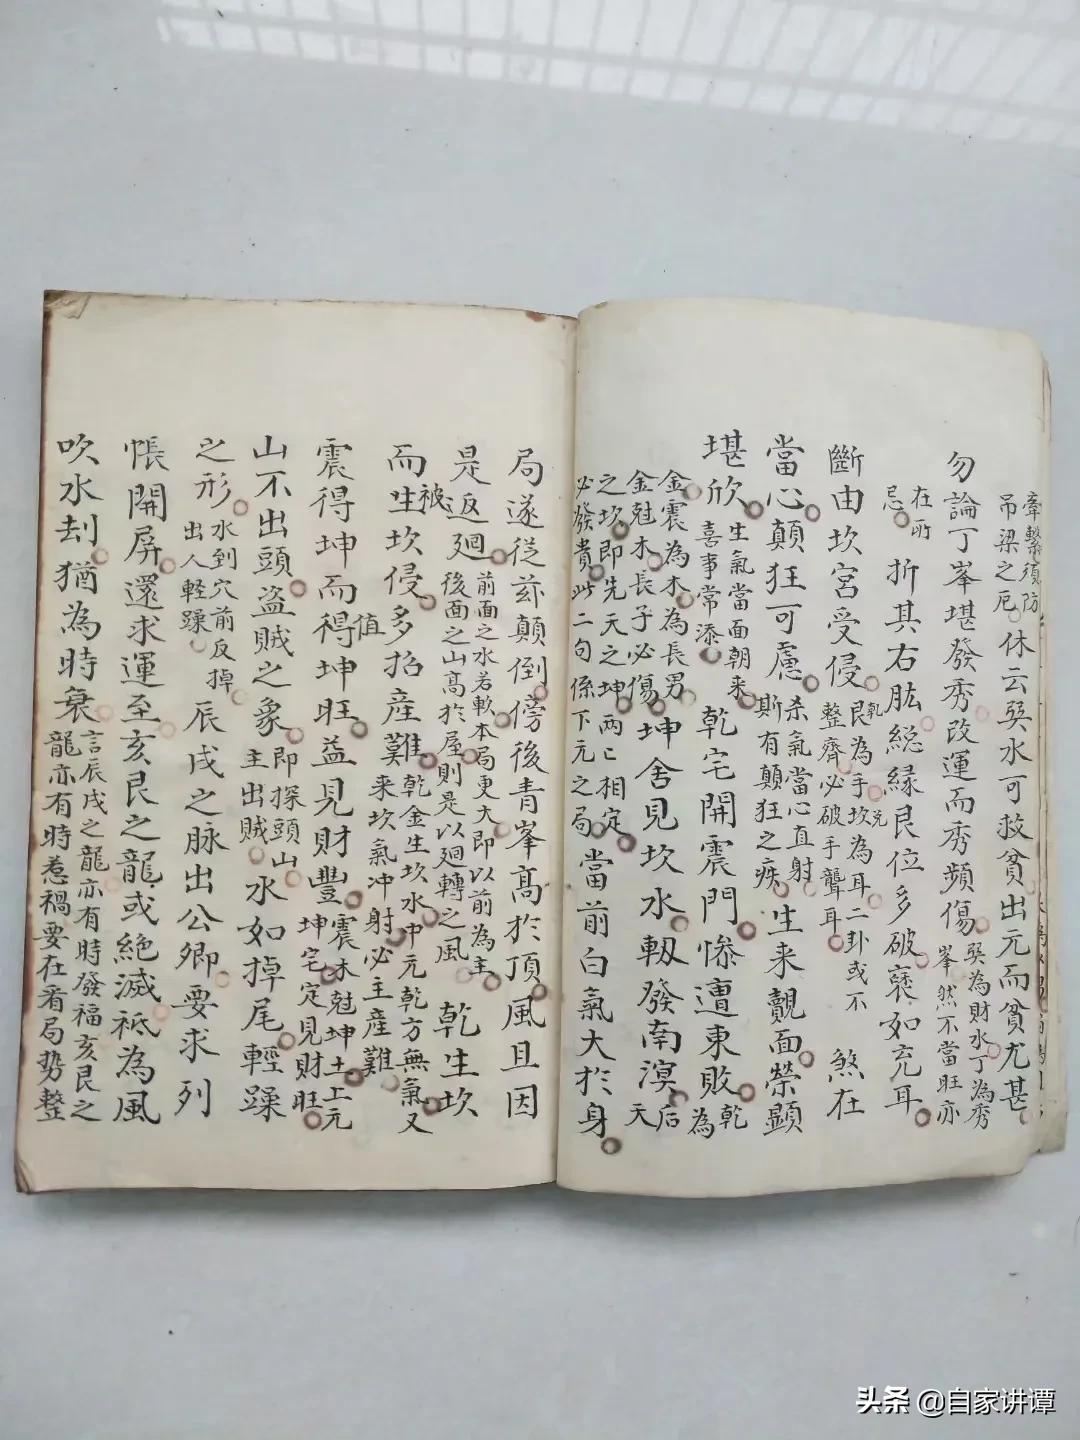 牽繫須防吊梁之厄休云巽水可救貧出元而貧尤甚
勿論丁峯堪發秀改運而秀頻傷巽為財水丁為秀峯然不當旺亦
在所忌折其右肱總緣艮位多破褒如充耳
斷由坎宮受侵乾艮為手坎為耳二卦或不整齊必破手聾耳煞在
當心顛狂可慮杀氣當心直射斯有顛狂之疾生来覿面榮顯
堪欣生氣當面朝来喜事常添乾宅開震門慘遭東敗乾為
金震為木為長男金尅木長子必傷坤舍見坎水軔發南溟后天
之坎即先天之坤兩兩相定必發貴此二句係下元之局當前白氣大於身
局遂從茲顛倒傍後青峯高於頂風且因
是返廻前面之水若軟本局更大即以前為主後面之山高於屋則是以廻轉之風乾生坎
而被坎侵多招產難乾金生坎水中元乾方無氣又来坎氣冲射必主產難
震得坤而值坤旺益見財豐震木尅坤土上元坤宅定見財旺
山不出頭盜賊之象即探頭山主出賊水如掉尾輕躁
之形水到穴前反掉出人輕躁辰戌之脉出公卿要求列
帳開屏還求運至亥艮之龍或絕滅祇為風
吹水刦猶為時衰言辰戌之龍亦有時發福亥艮之龍亦有時惹禍要在看局势整
头条 @自家讲谭